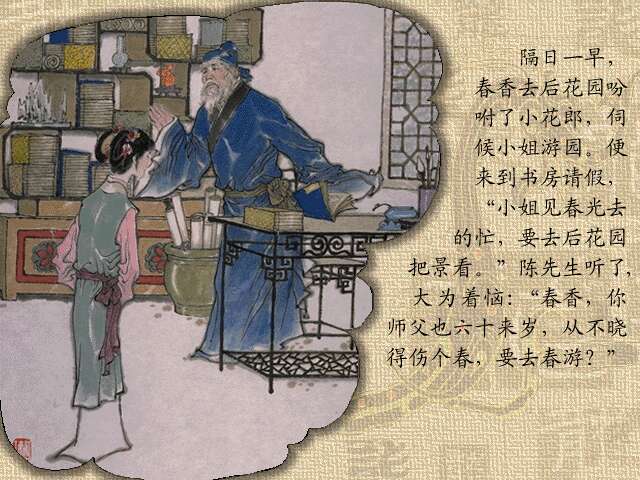 隔日一早，
春香去后花园吩
咐了小花郎，伺
候小姐游园。便
来到书房请假，
“小姐见春光去
的忙，要去后花园
把景看。”陈先生听了，
大为着恼：“春香，你
师父也六十来岁，从不晓
得伤个春，要去春游？”